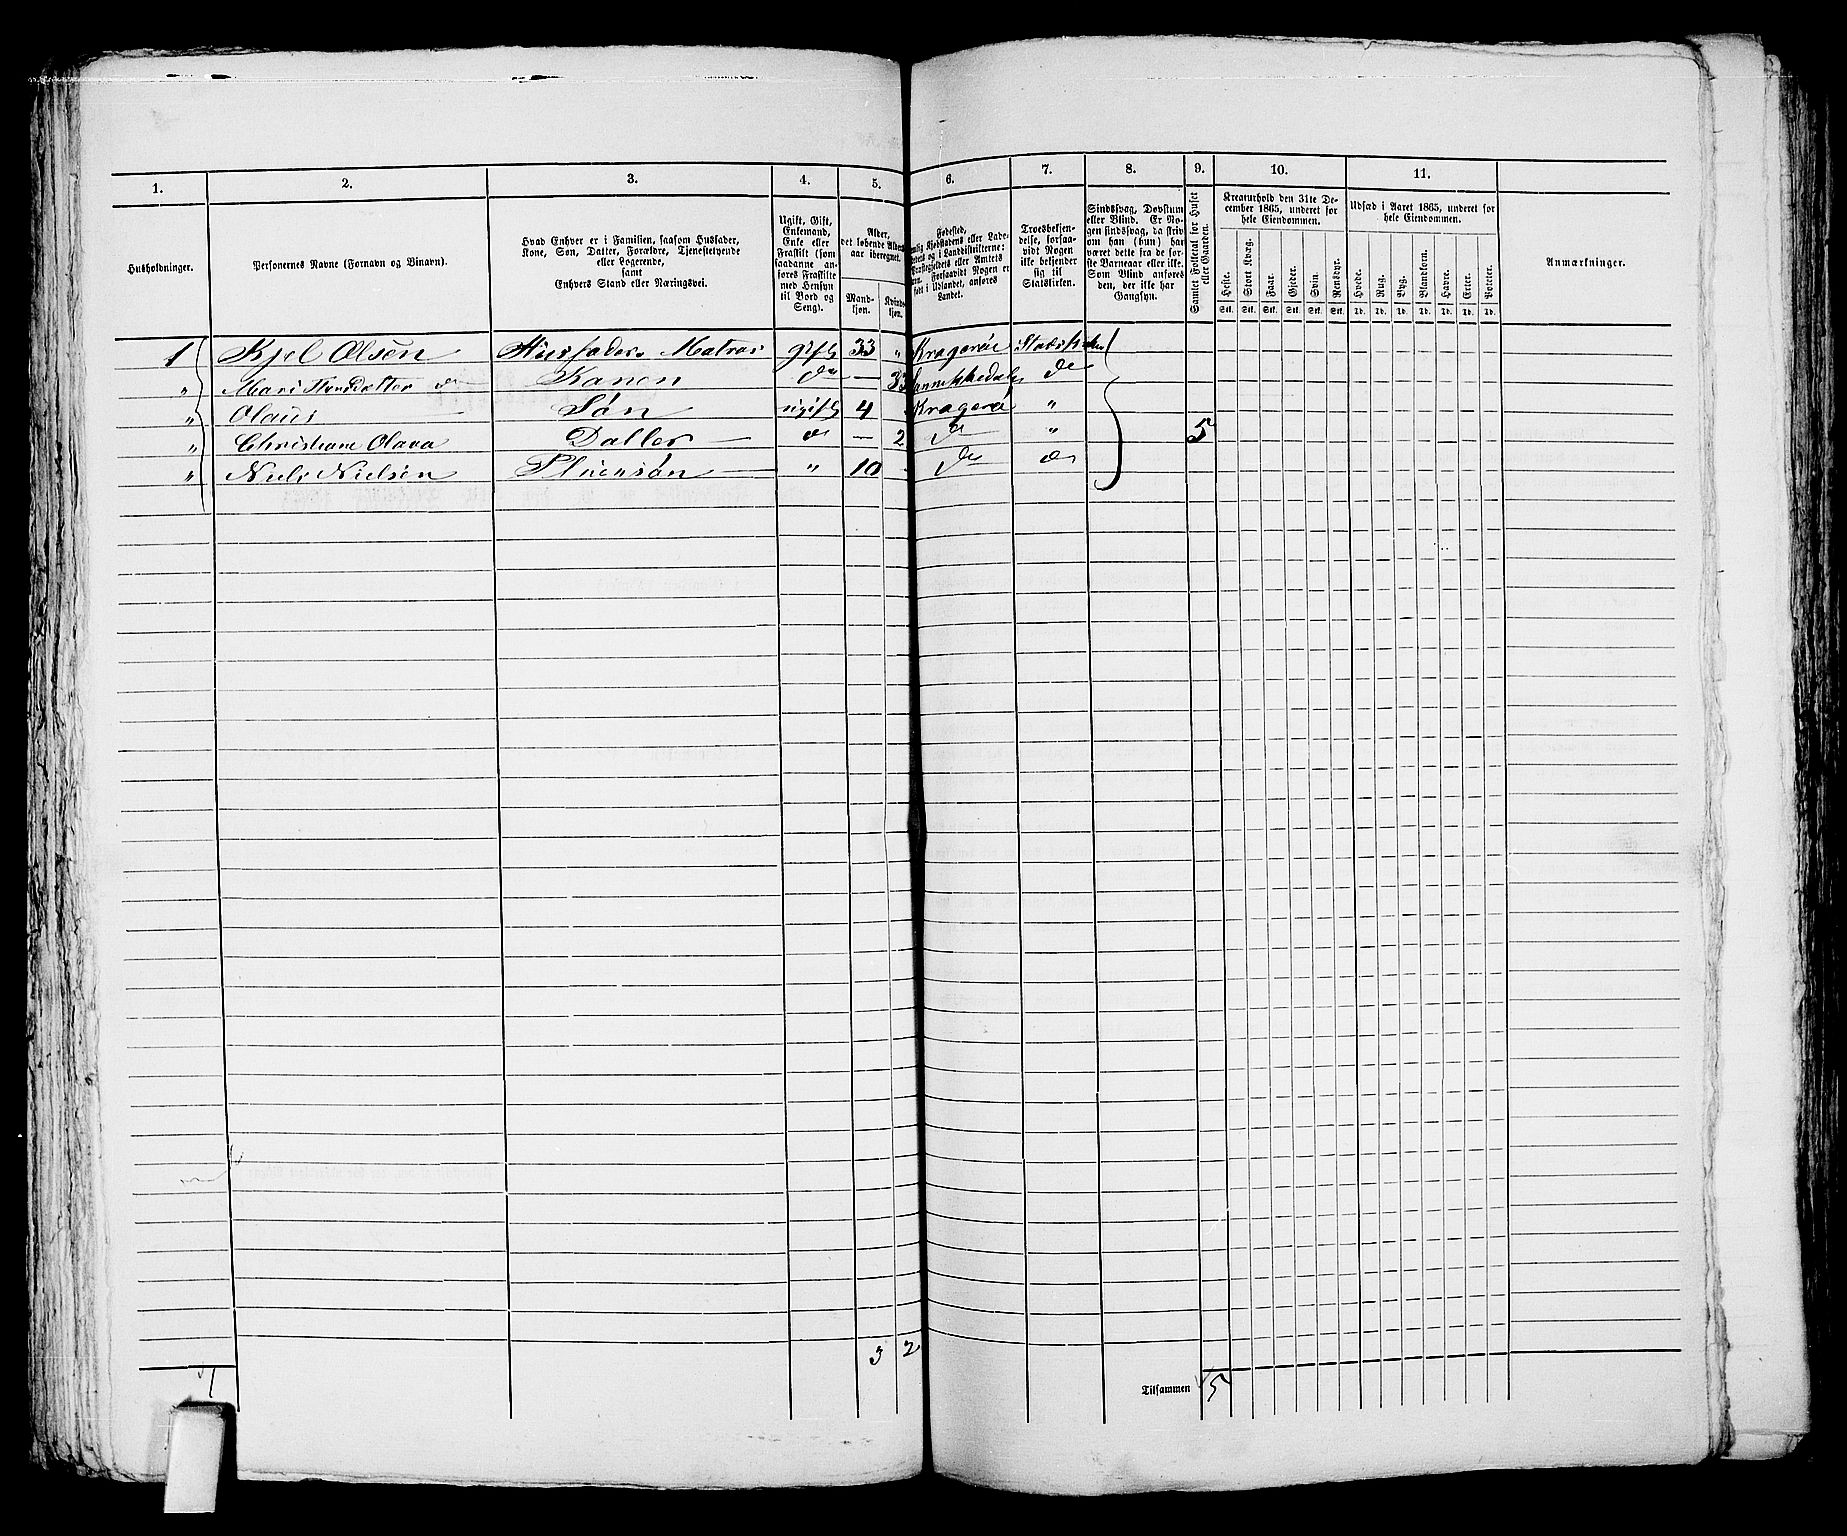 1. 2. 3. 4. 5. 6. 7. 8. 9. 10. 11.
Husholdninger.
Personernes Navne (Fornavn og Binavn).
Hvad Enhver er i Familien, saasom Husfader,
Kone, Søn, Datter, Forældre, Tjenestetyende
eller Logerende,
samt
Enhvers Stand eller Næringsvei.
Ugift, Gift,
Enkemand,
Enke eller
Fraskilt (som
saadanne an-
føres Fraskilte
med Hensyn
til Bord og
Seng).
Alder,
det løbende Alders-
aar iberegnet.
Mand-
kjøn.
Kvinde-
kjøn.
Fødested,
Kjøbstadens eller Lade-
stedets og i Landdistrikterne:
Præstegjeldets eller Amtets
Navn. Forsaavidt Nogen er
født i Udlandet, anføres
Landet.
Troesbekjen-
delse, forsaa-
vidt Nogen
ikke bekjender
sig til
Statskirken.
Sindssvag, Døvstum
eller Blind. Er No-
gen sindssvag, da skriv
om han (hun) har
været dette fra de før-
ste Barneaar eller ikke.
Som Blind anføres
den, der ikke har
Gangsyn.
Samlet Folketal for Huset
eller Gaarden.
Kreaturhold den 31te De-
cember 1865, underet for
hele Eiendommen.
Heste. Stort Kvæg. Faar. Gjeder. Svin. Rensdyr.
Stk. Stk. Stk. Stk. Stk. Stk.
Udsæd i Aaret 1865, underet for
hele Eiendommen.
Hvede. Rug. Byg. Blandkorn. Havre. Erter. Poteter.
Td. Td. Td. Td. Td. Td. Td.
Anmærkninger.
1 Kjel Olsen Huusfader, Matros gift 33 " Kragerøe Statskirken
" Mari Do Konen Do — 33 Sannikkedals Do
" Olaus Søn ugift 4 Kragerø "
" Christiane Olava Datter — do — 2 Do " 5
" Niels Nielsen Pleiesøn — " 10 Do do
3 2
1
Tilsammen 5